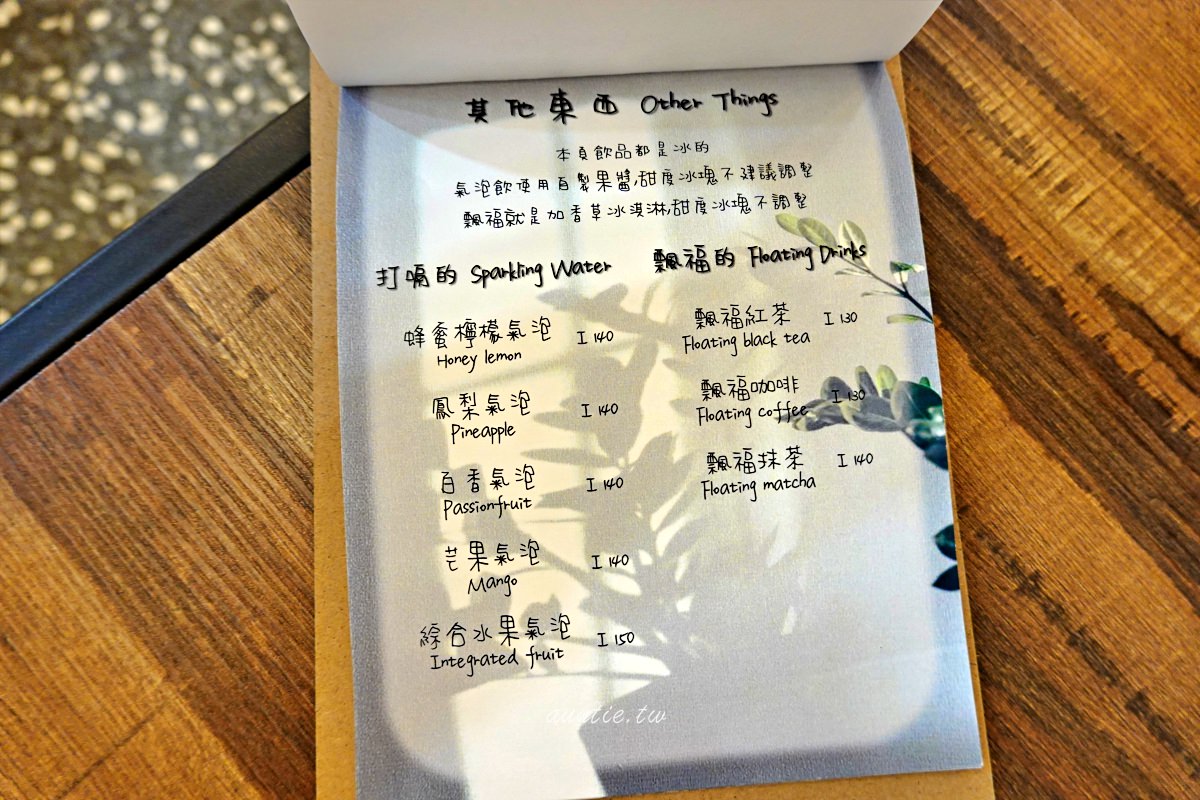 其他東西 Other Things
本頁飲品都是冰的
氣泡飲使用自製果醬,甜度冰塊不建議調整
飄福就是加香草冰淇淋,甜度冰塊不調整
打嗝的 Sparkling Water
蜂蜜檸檬氣泡 I 140
Honey lemon
鳳梨氣泡 I 140
Pineapple
百香氣泡 I 140
Passionfruit
芒果氣泡 I 140
Mango
綜合水果氣泡 I 150
Integrated fruit
飄福的 Floating Drinks
飄福紅茶 I 130
Floating black tea
飄福咖啡 I 130
Floating coffee
飄福抹茶 I 140
Floating matcha
auntie.tw